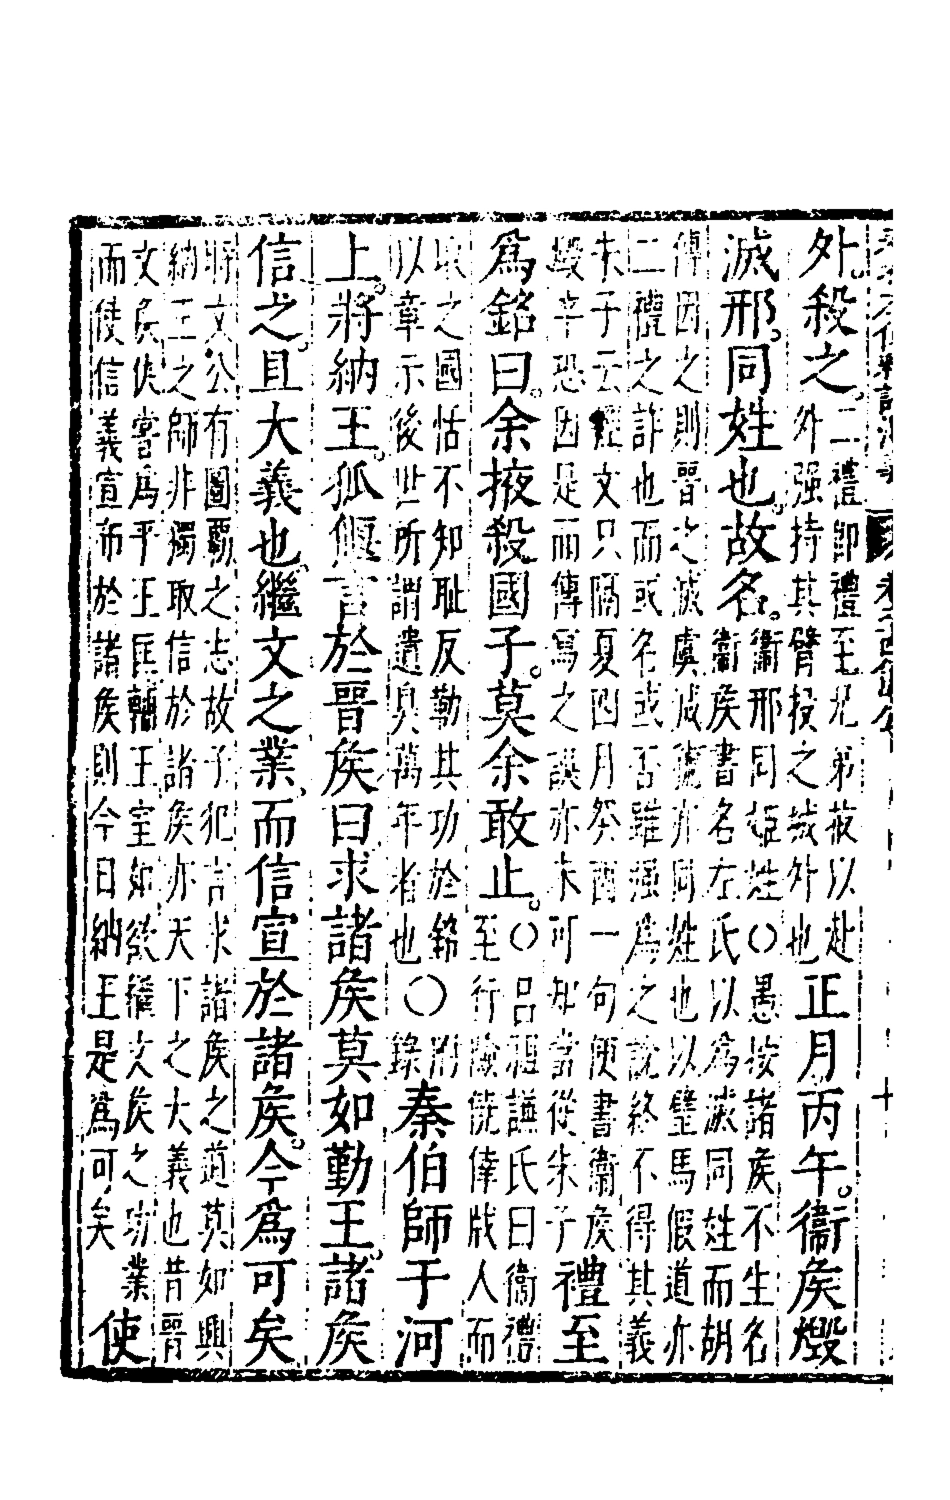 外。殺之。二禮卽禮至兄弟故以赴
外强持其臂投之城外也正月丙午。衞矦燬
滅邢。同姓也。故名。衞邢同姬姓〇愚按諸矦不生名
衞矦書名左氏以爲滅同姓而胡
傳因之則晉之滅虞滅虢亦同姓也以璧馬假道亦
二禮之詐也而或名或否雖强爲之說終不得其義
朱子云經文只隔夏四月癸酉一句便書衞矦
燬卒恐因是而傳寫之誤亦未可知當從朱子禮至
爲銘曰。余掖殺國子。莫余敢止。〇呂祖謙氏曰衞禮
至行險徼倖戕人而
取之國恬不知耻反勒其功於銘
以章示後世所謂遺臭萬年者也〇附錄秦伯師于河
上。將納王。狐偃言於晉矦曰求諸矦莫如勤王。諸矦
信之。且大義也。繼文之業而信宣於諸矦。今爲可矣
將文公有圖覇之志故子犯言求諸矦之道莫如興
納王之師非獨取信於諸矦亦天下之大義也昔晉
文矦嘗爲平王匡輔王室如欲繼文矦之功業
而使信義宣布於諸矦則今日納王是爲可矣使